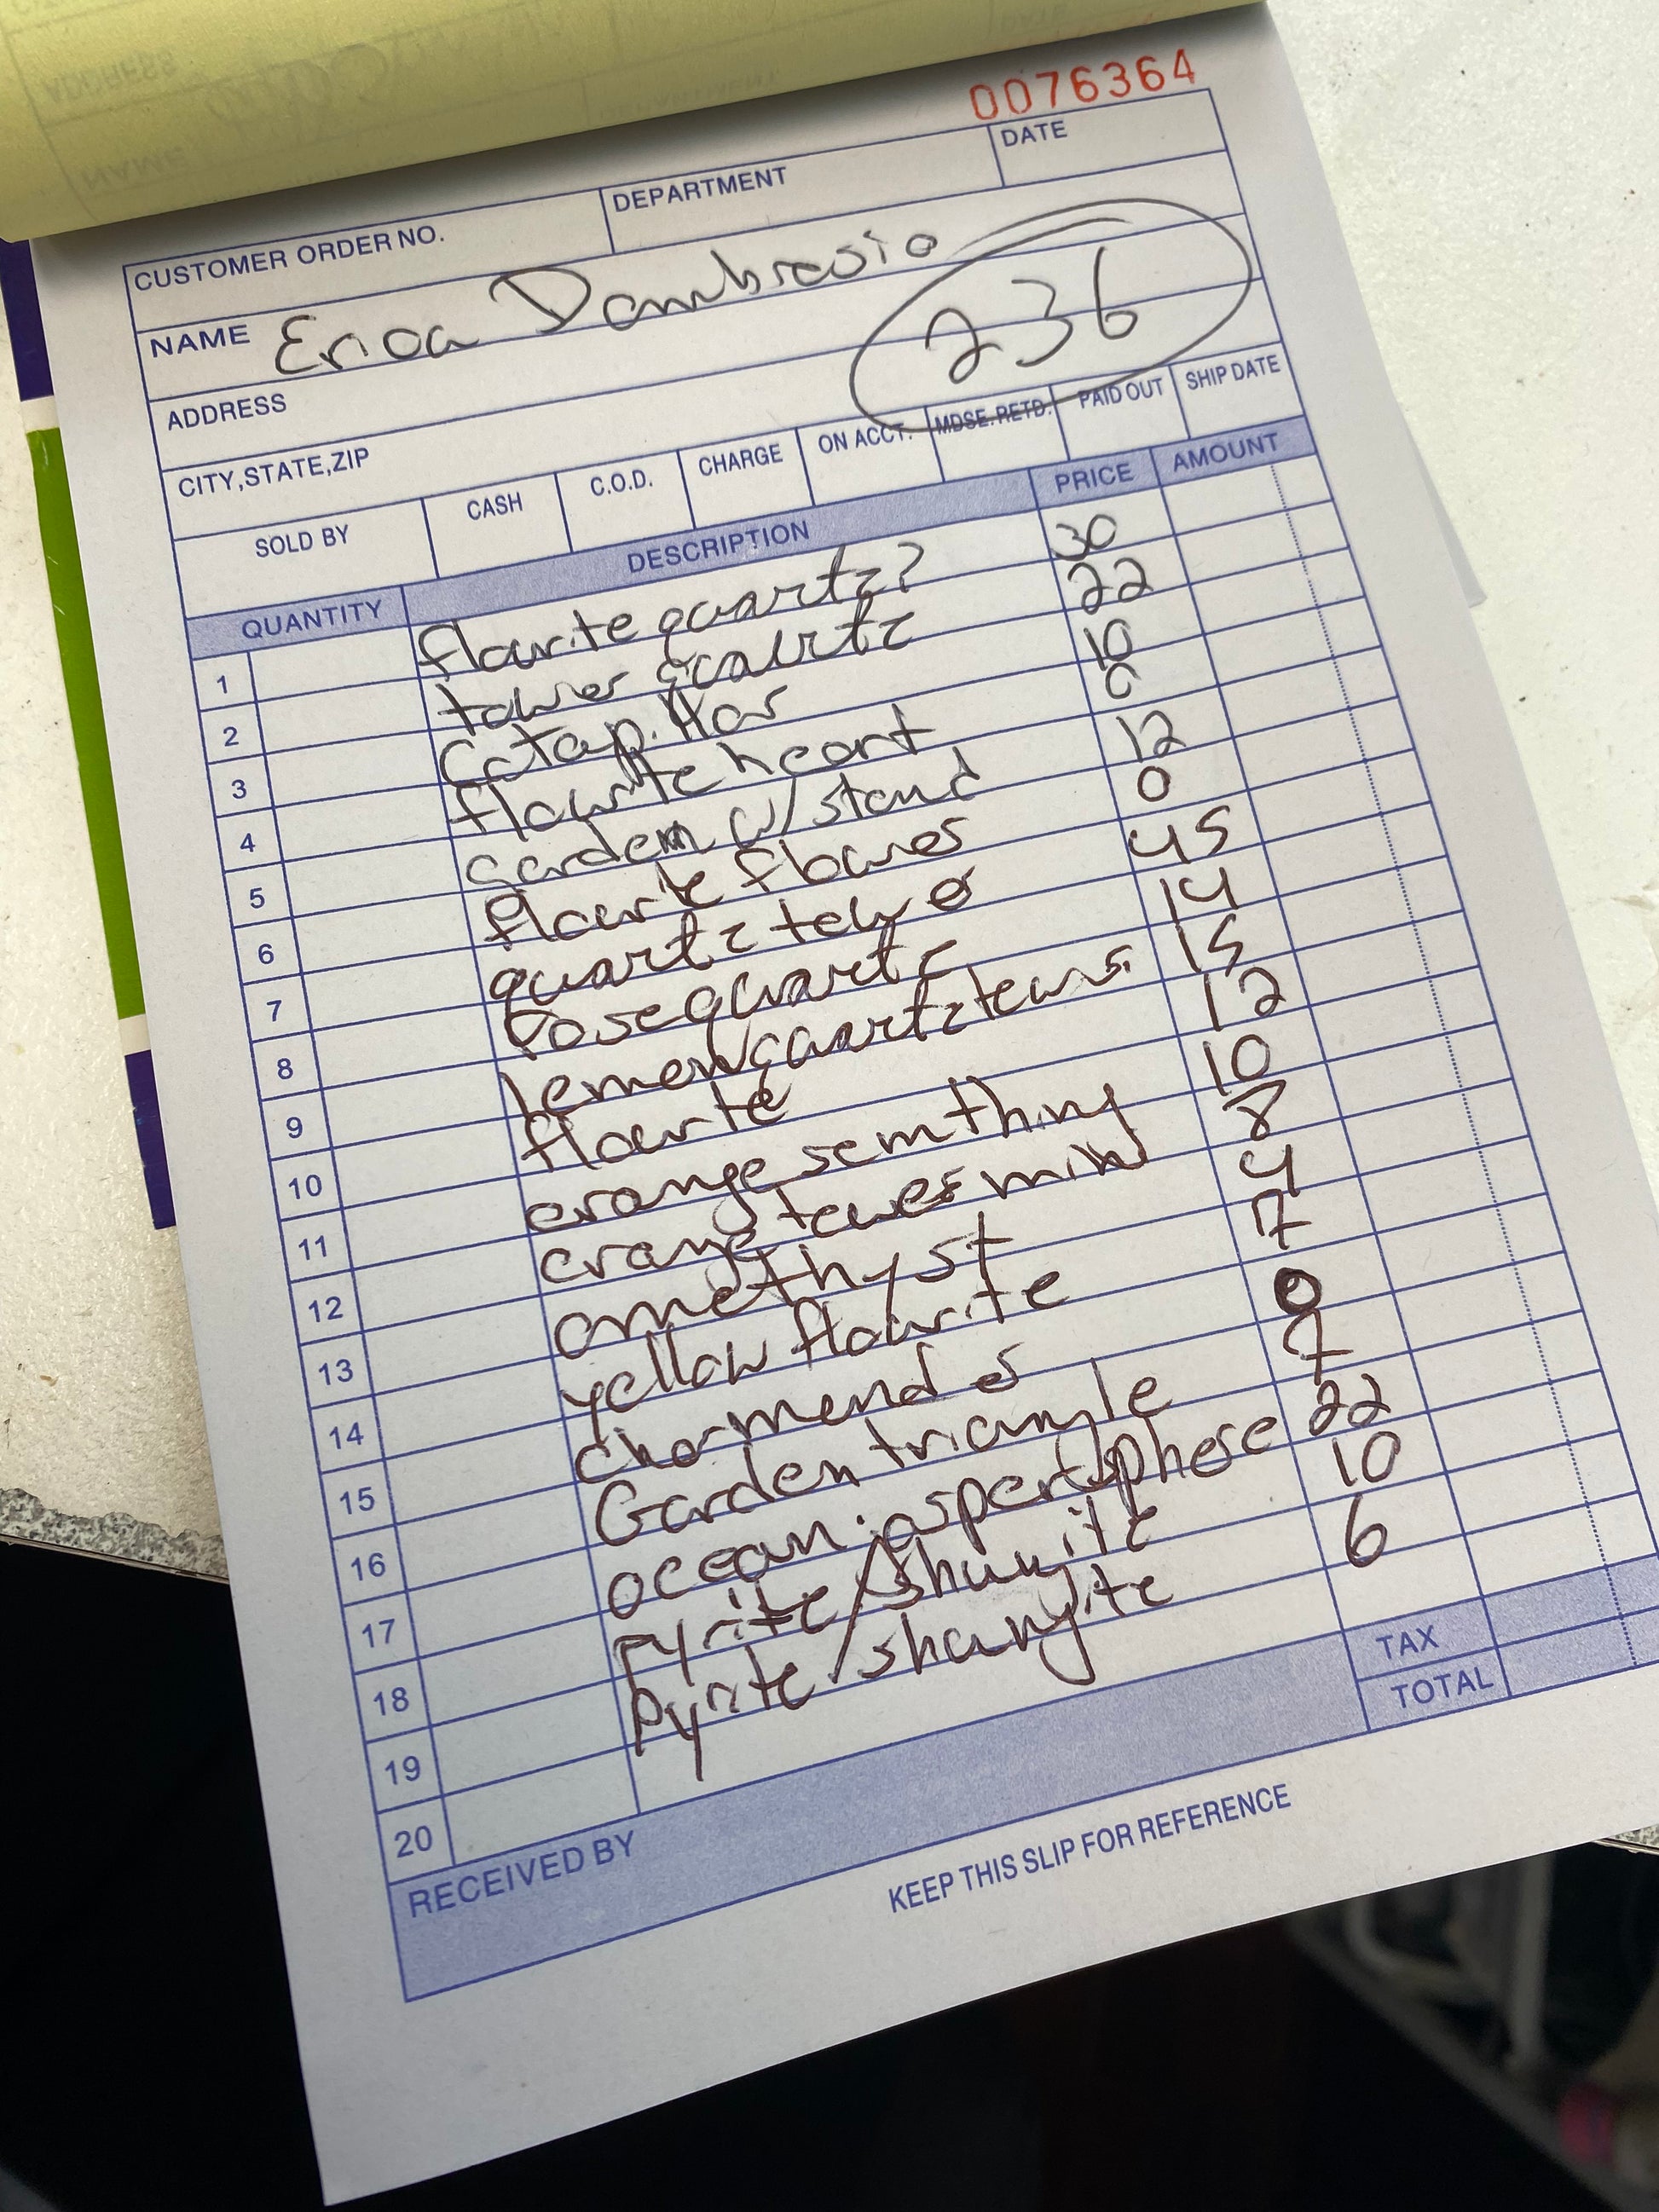 0076364
CUSTOMER ORDER NO. DEPARTMENT DATE
NAME Erica Dambrosio
ADDRESS 236
CITY,STATE,ZIP
SOLD BY CASH C.O.D. CHARGE ON ACCT. MDSE. RETD. PAID OUT SHIP DATE
QUANTITY DESCRIPTION PRICE AMOUNT
1 flourite quartz? 30
2 tower quartz 22
3 10
4 flourite heart
5 garden w/ stand 12
6 flourite flower 0
7 quartz tower 45
8 rose quartz 14
9 lemon quartz tower 15
10 flourite 12
11 orange somthing 10
12 orange tower mini 8
13 amethyst 4
14 yellow flourite 7
15 charmender 0
16 Garden triangle
17 ocean jasper sphere 22
18 pyrite/shungite 10
19 pyrite/shungite 6
20
TAX
TOTAL
RECEIVED BY
KEEP THIS SLIP FOR REFERENCE